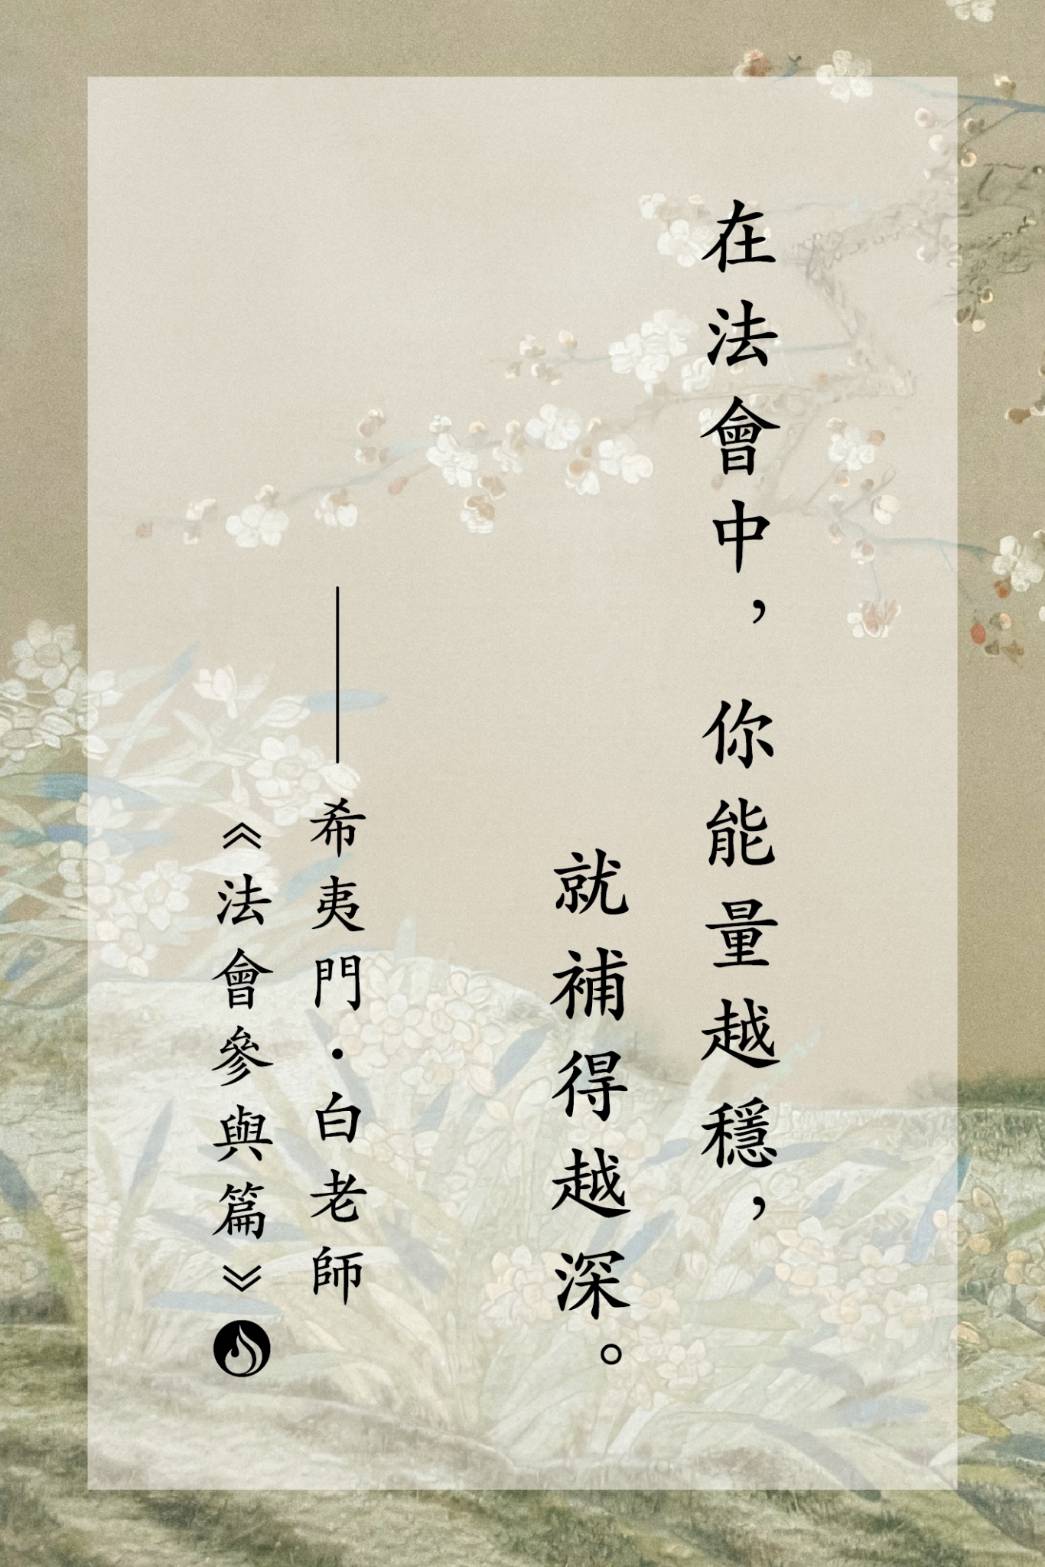 在法會中，你能量越穩，
就補得越深。
——希夷門·白老師
《法會參與篇》